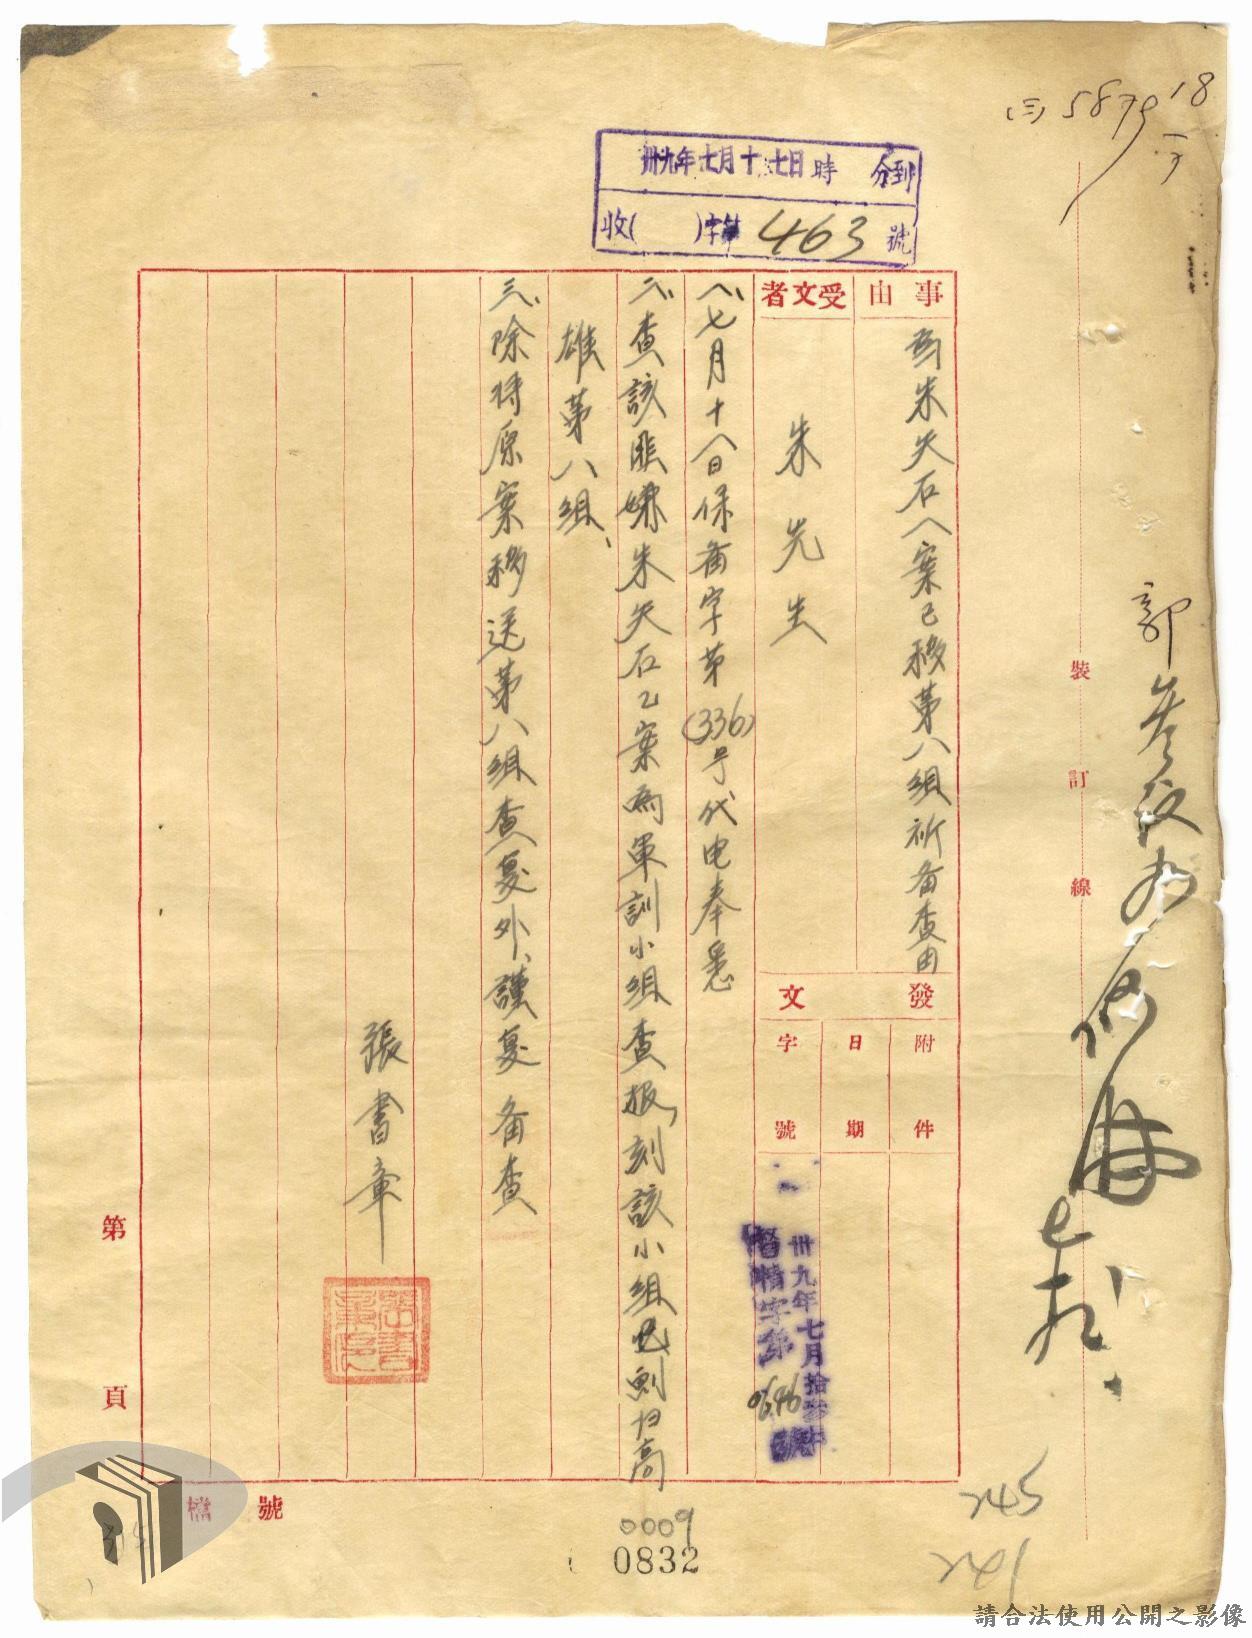 (三) 5879 18
卅九年七月十七日 時 分到
收( )字第 463 號
事由
為朱天石乙案已移第八組祈备查由
受文者
朱先生
發文
附件
日期
字號
卅九年七月拾
督情字第 0646 號
一、七月十八日保备字第(336)号代电奉悉
二、查該匪嫌朱天石乙案為軍訓小組查报,刻該小組已劃归高
雄第八組、
三、除将原案移送第八組查复外、謹复 备查
張書章
裝訂線
第 頁
檔號
0009
0832
245
請合法使用公開之影像